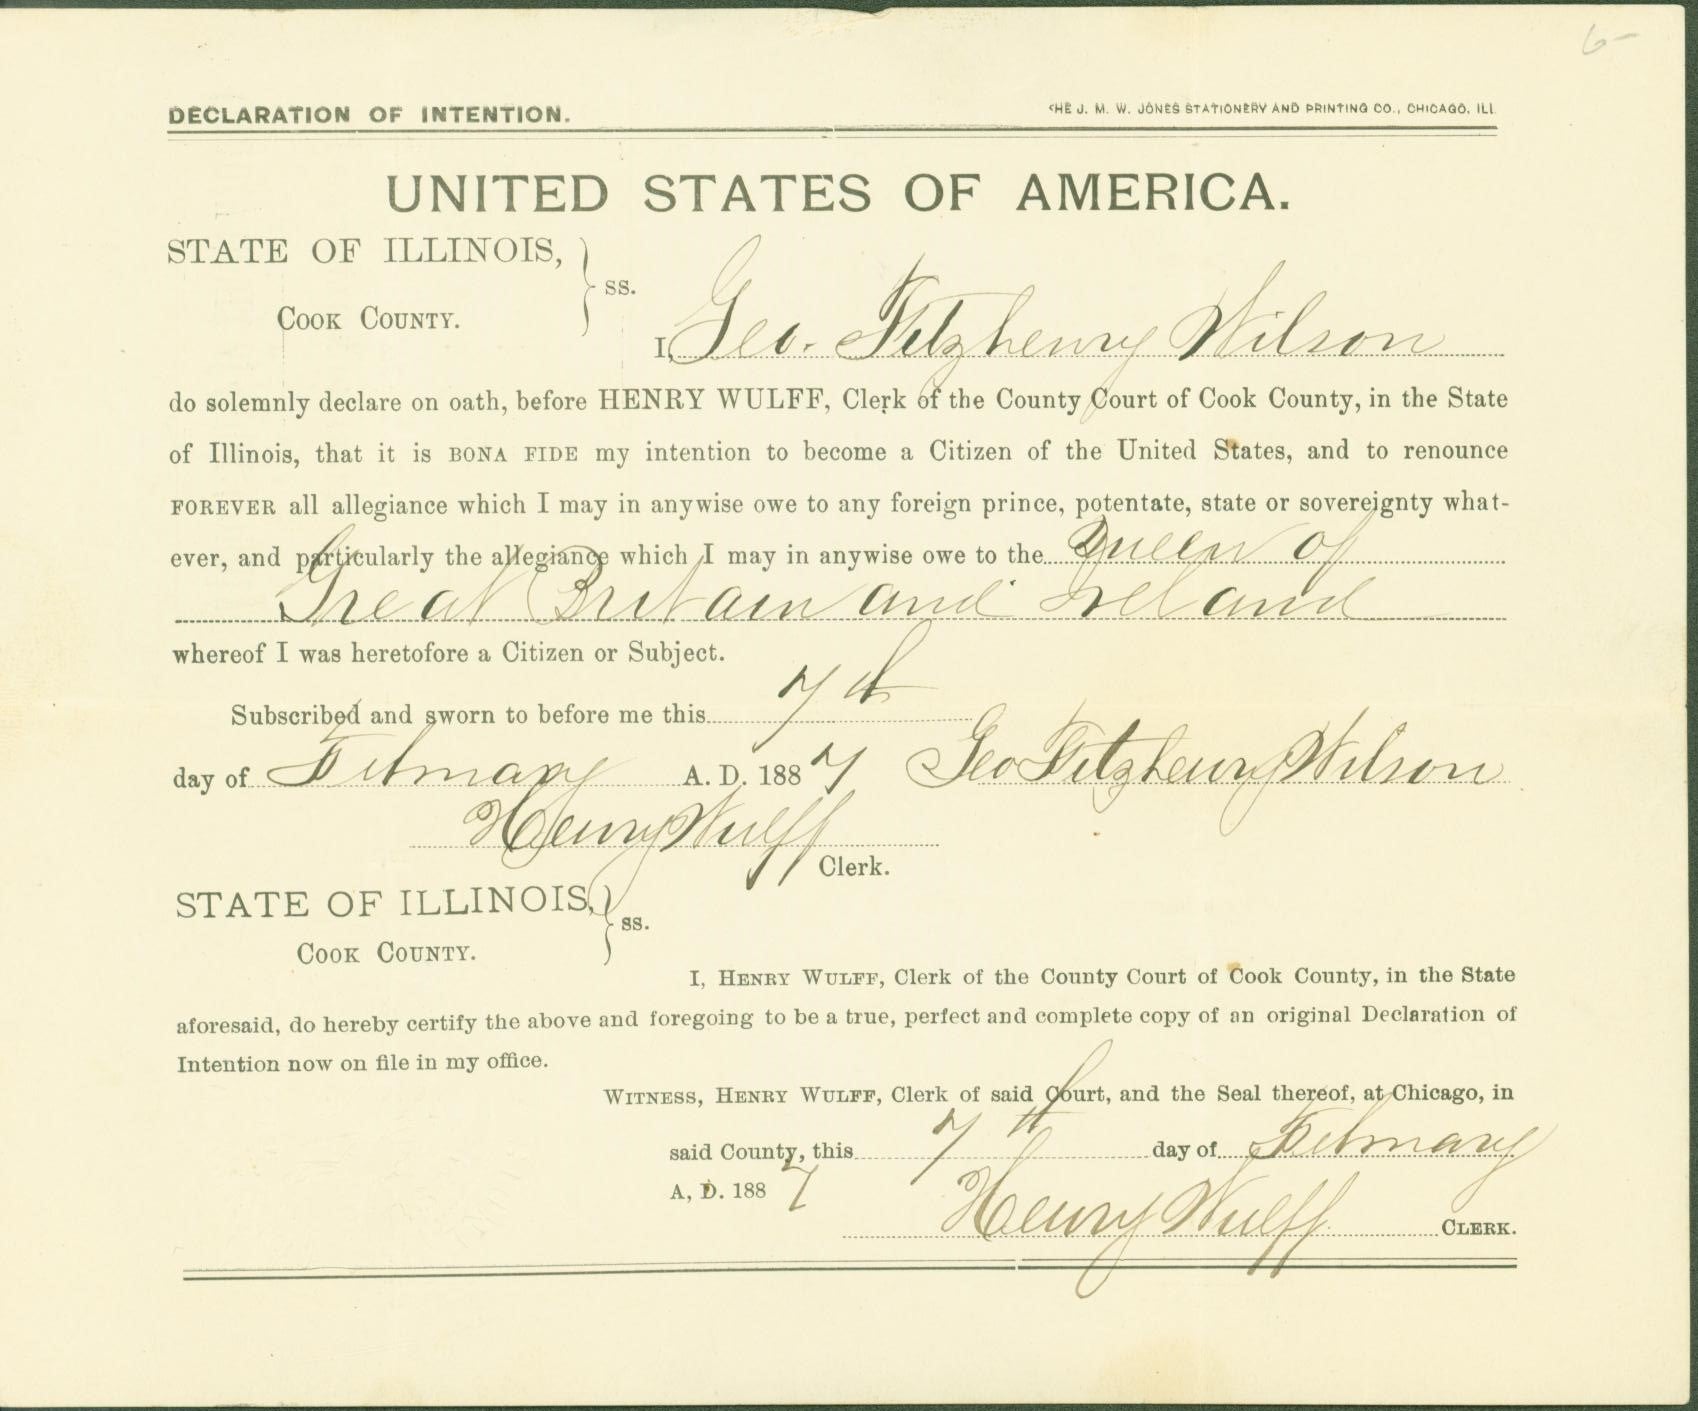 6-
DECLARATION OF INTENTION.
THE J. M. W. JONES STATIONERY AND PRINTING CO., CHICAGO, ILL
UNITED STATES OF AMERICA.
STATE OF ILLINOIS,
COOK COUNTY.
ss.
I, Geo. Fitzhenry Wilson
do solemnly declare on oath, before HENRY WULFF, Clerk of the County Court of Cook County, in the State
of Illinois, that it is BONA FIDE my intention to become a Citizen of the United States, and to renounce
FOREVER all allegiance which I may in anywise owe to any foreign prince, potentate, state or sovereignty what-
ever, and particularly the allegiance which I may in anywise owe to the Queen of
Great Britain and Ireland
whereof I was heretofore a Citizen or Subject.
Subscribed and sworn to before me this 7th
day of February A. D. 1887 Geo Fitzhenry Wilson
Henry Wulff
Clerk.
STATE OF ILLINOIS,
COOK COUNTY.
ss.
I, HENRY WULFF, Clerk of the County Court of Cook County, in the State
aforesaid, do hereby certify the above and foregoing to be a true, perfect and complete copy of an original Declaration of
Intention now on file in my office.
WITNESS, HENRY WULFF, Clerk of said Court, and the Seal thereof, at Chicago, in
said County, this 7th day of February
A, D. 1887
Henry Wulff CLERK.